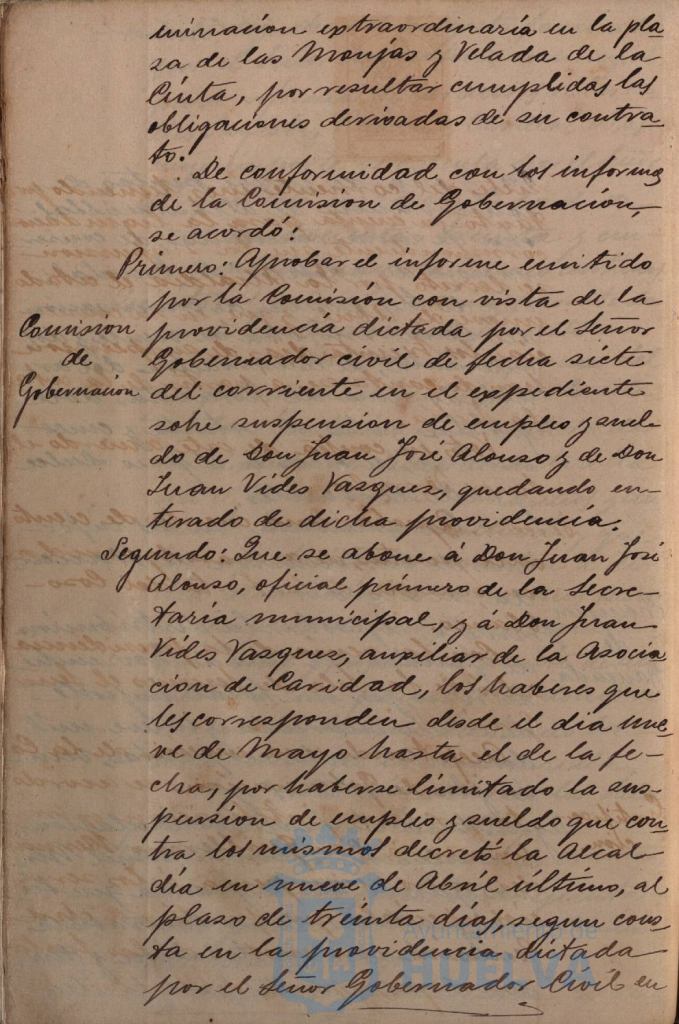 minación extraordinaria en la pla-
za de las Monjas y Velada de la
Cinta, por resultar cumplidas las
obligaciones derivadas de su contra-
to.
De conformidad con los informes
de la Comision de Gobernación,
se acordó:
Primero: Aprobar el informe emitido
por la Comisión con vista de la
Comision
de
Gobernacion
providencia dictada por el Señor
Gobernador civil de fecha siete
del corriente en el expediente
sobre suspension de empleo y suel-
do de Don Juan José Alonso y de Don
Juan Vides Vasquez, quedando en-
terado de dicha providencia.
Segundo: Que se abone á Don Juan José
Alonso, oficial primero de la Secre-
taría municipal, y á Don Juan
Vides Vasquez, auxiliar de la Asocia-
cion de Caridad, los haberes que
les corresponden desde el dia nue-
ve de Mayo hasta el de la fe-
cha, por haberse limitado la sus-
pension de empleo y sueldo que con-
tra los mismos decretó la Alcal-
día en nueve de Abril último, al
plazo de treinta días, segun cons-
ta en la providencia dictada
por el Señor Gobernador Civil en
Ayuntamiento de
HUELVA